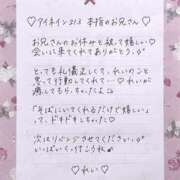 ♡アイネイン213 本指のお兄さん♡
お兄さんのお休みと被って嬉しい♡
会いに来てくれてありがとう♡
とっても礼儀正しくて、れいのこと
思って行動してくれて…♡れいが
満してもらっちゃった♡
「そばにいてくれるだけで嬉しい」
って、ドキドキしちゃった♡
次はリベンジさせてください♡
いっぱいくっつこうね
♡れい♡